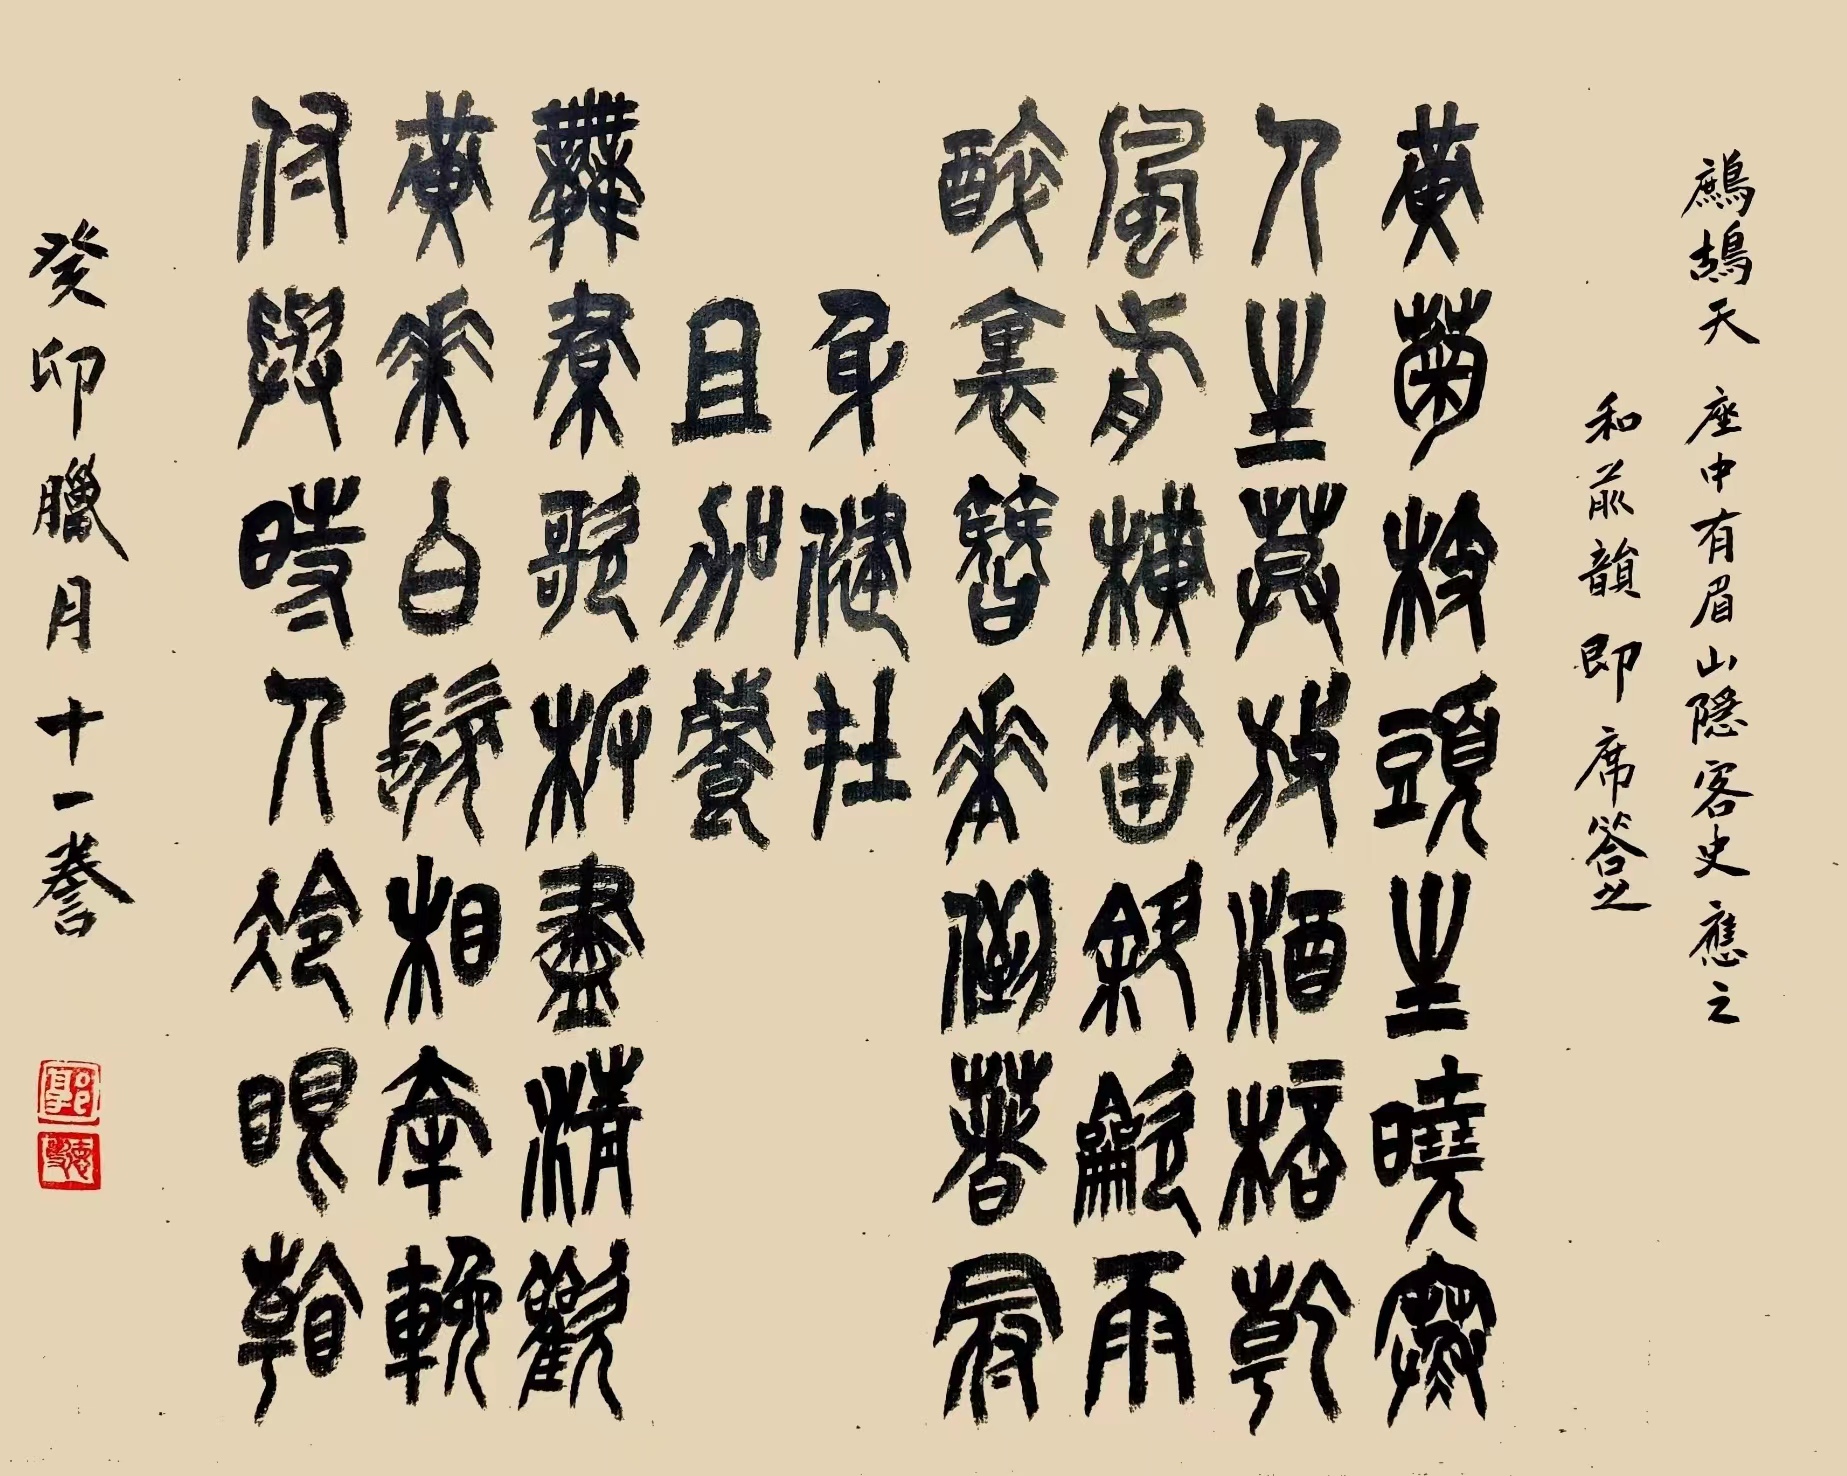 鷓鴣天 座中有眉山隱客史應之
和前韻即席答之
黃菊枝頭生曉寒
人生莫放酒杯乾
風前橫笛斜龡雨
醉裏簪花倒著冠
身健在
且加餐
舞帬歌板盡清歡
黃花白髮相牽挽
付與時人冷眼看
癸卯臘月十一謄